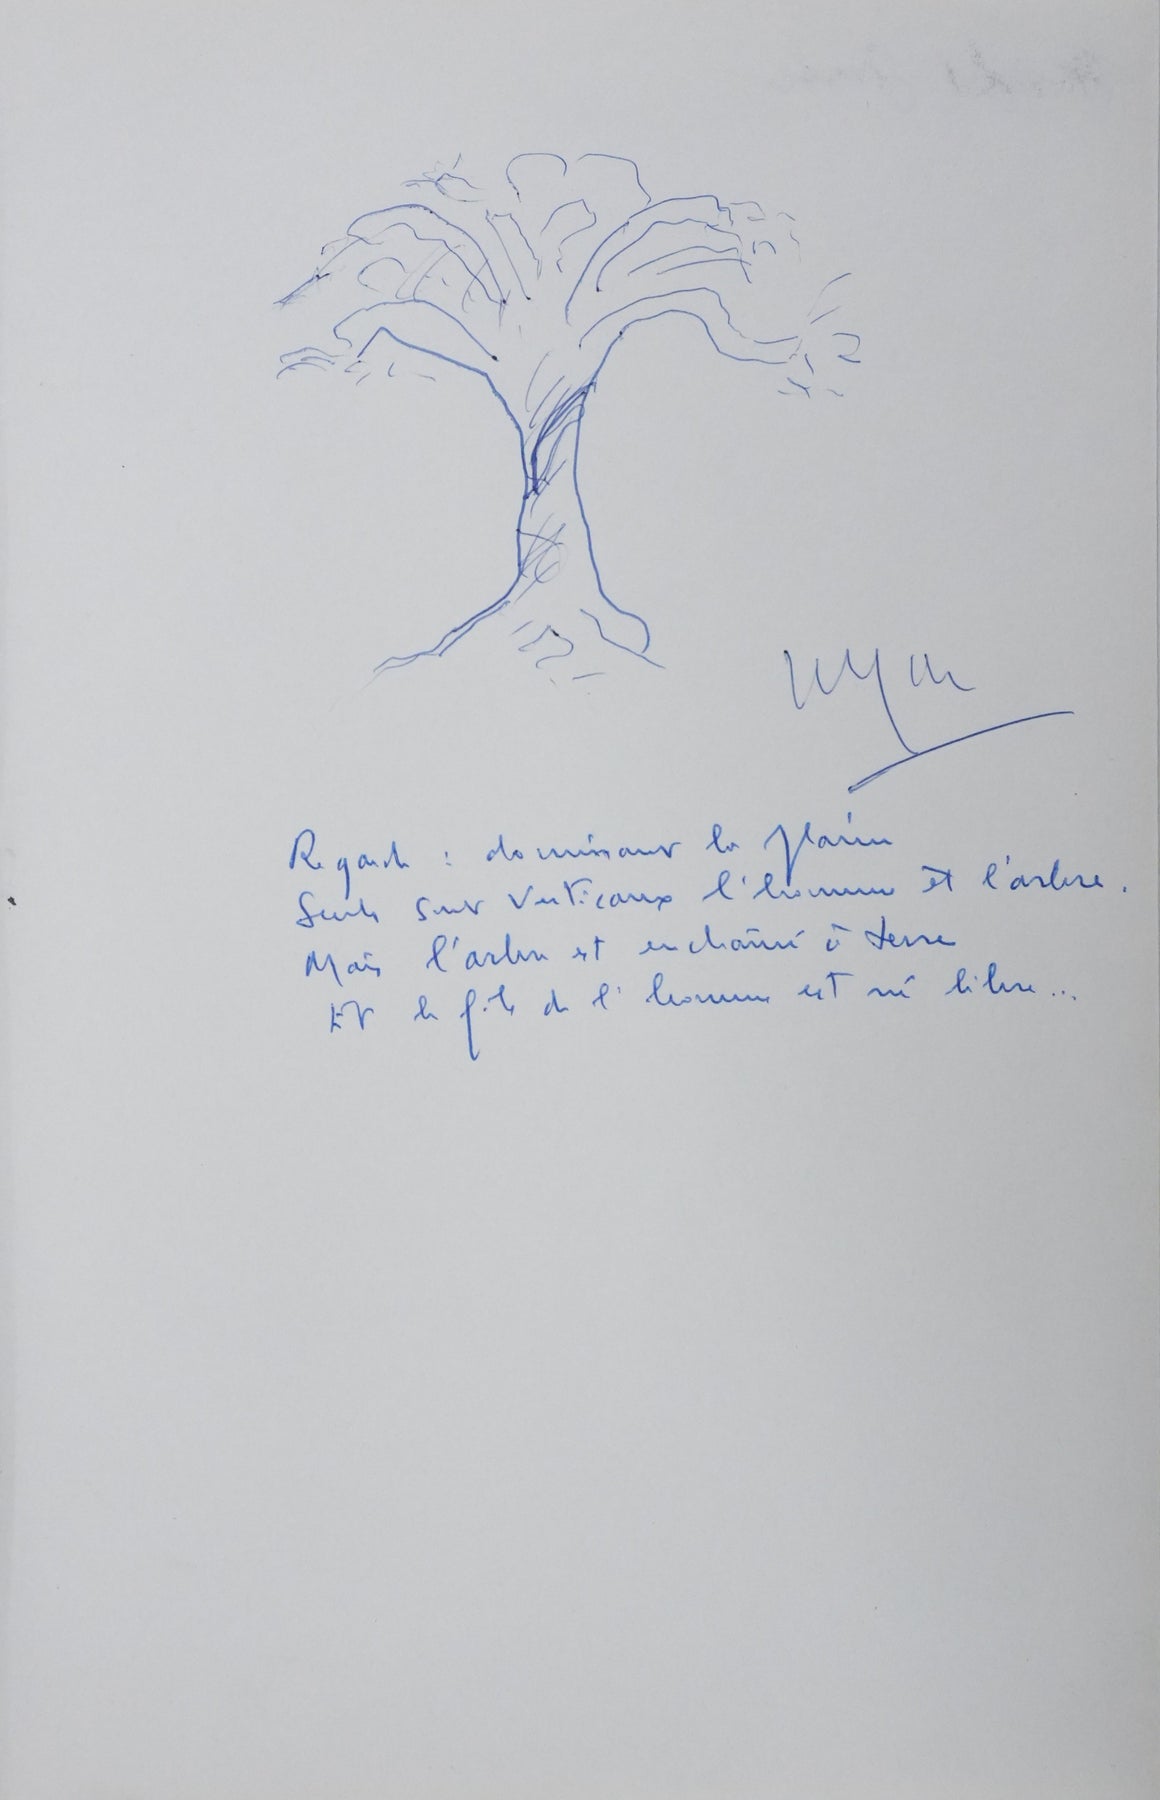 Regarde : dominant la plaine
Seuls sont verticaux l'homme et l'arbre.
Mais l'arbre est enchaîné à terre
Et le fils de l'homme est né libre...